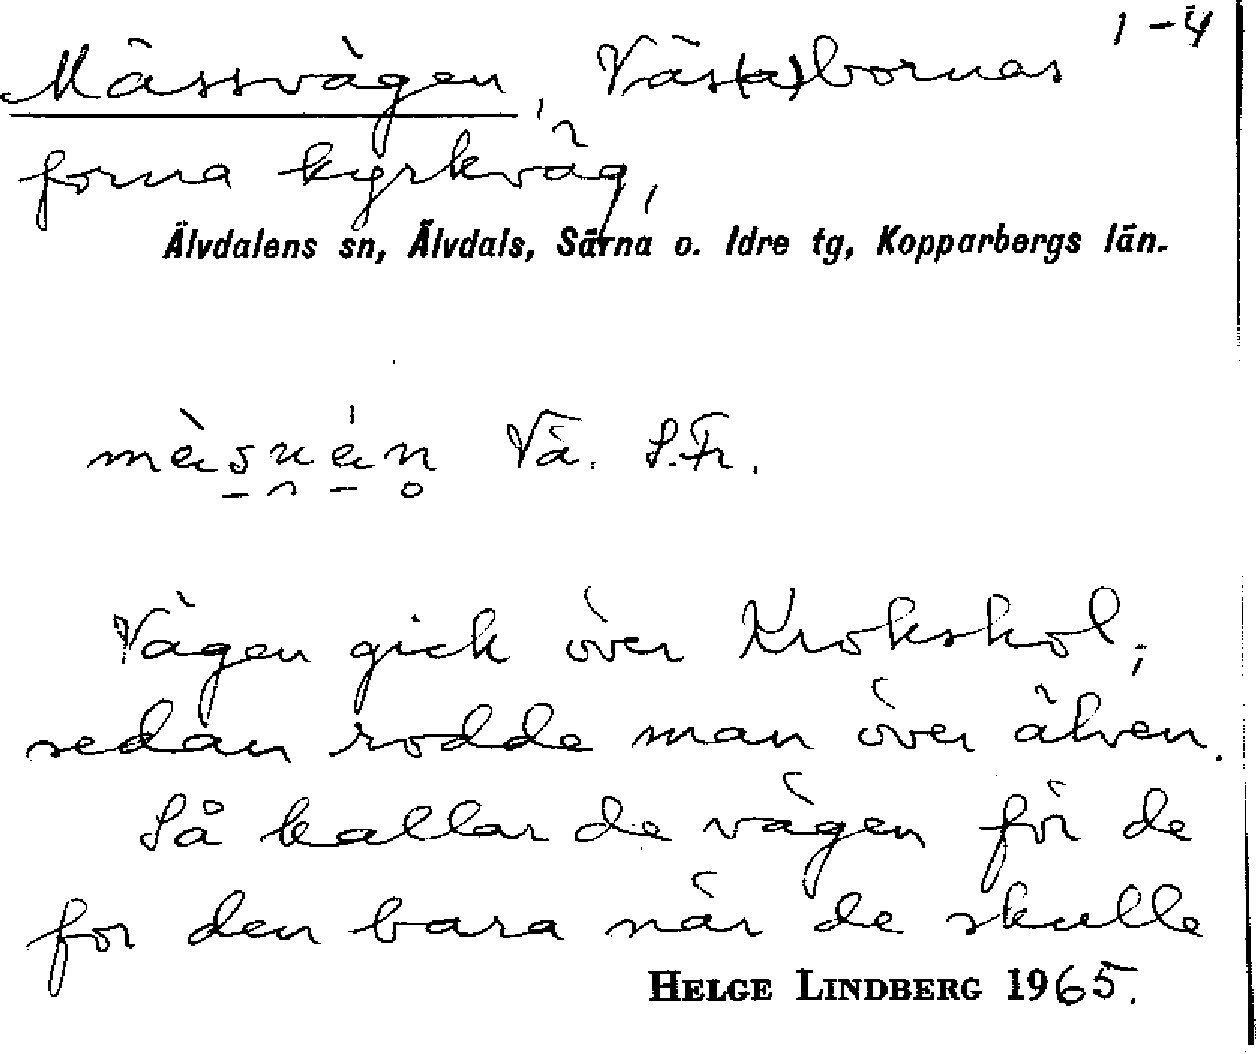 1-4
Mässvägen, Väs(a)bornas
forna kyrkväg,
Älvdalens sn, Älvdals, Särna o. Idre tg, Kopparbergs län.
Vä. S.Fr.
Vägen gick över Krokskol;
sedan rodde man över älven.
Så kallar de vägen för de
for den bara när de skulle
HELGE LINDBERG 1965.